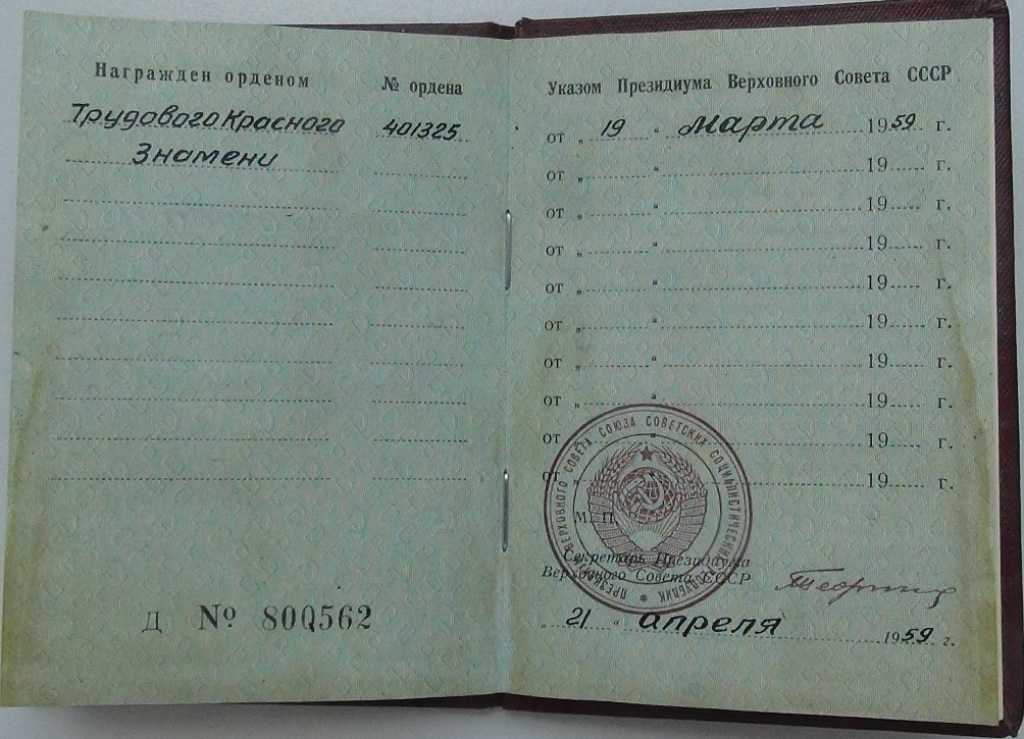 Награжден орденом
№ ордена
Трудового Красного
401325
Знамени
Д № 800562
Указом Президиума Верховного Совета СССР
от „ 19 “ марта 1959 г.
от „ “ 19 г.
от „ “ 19 г.
от „ “ 19 г.
от „ “ 19 г.
от „ “ 19 г.
от „ “ 19 г.
от „ “ 19 г.
от „ “ 19 г.
от „ “ 19 г.
ПРЕЗИДИУМ ВЕРХОВНОГО СОВЕТА СОЮЗА СОВЕТСКИХ СОЦИАЛИСТИЧЕСКИХ РЕСПУБЛИК
М. П.
Секретарь Президиума
Верховного Совета СССР
„ 21 “ апреля 1959 г.